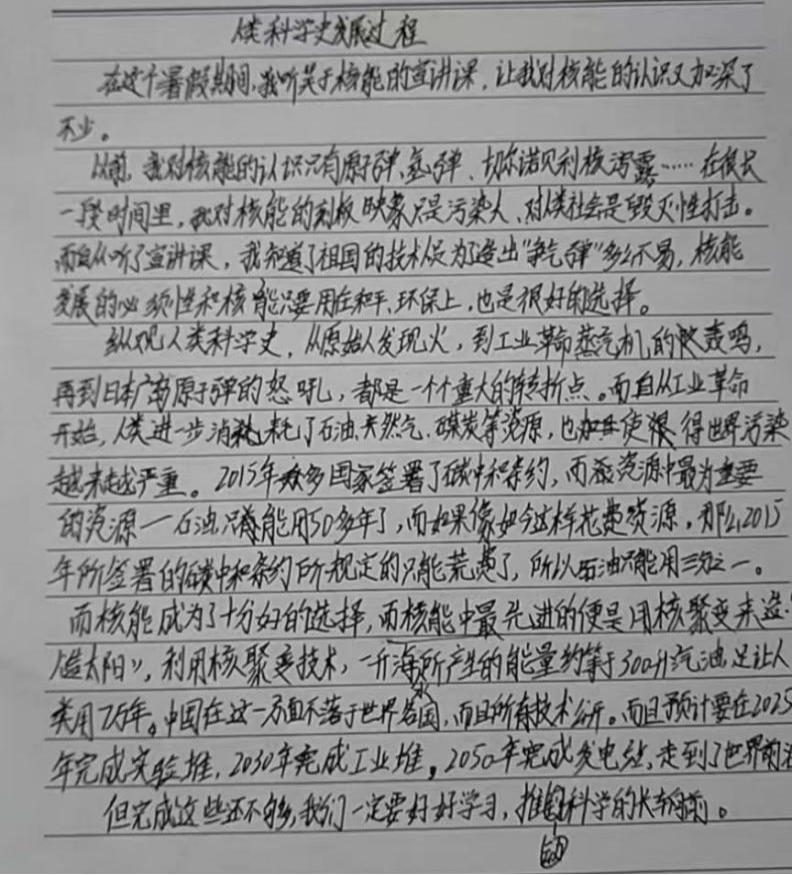 人类科学史发展过程
在这个暑假期间,我听关于核能的宣讲课,让我对核能的认识又加深了
不少。
以前,我对核能的认识只有原子弹、氢弹、切尔诺贝利核泻露……在很长
一段时间里,我对核能的刻板映象只是污染大、对人类社会是毁灭性打击。
而自从听了宣讲课,我知道了祖国的技术人员为了造出“争气弹”多么不易,核能
发展的必须性和核能只要用在和平、环保上,也是很好的选择。
纵观人类科学史,从原始人发现火,到工业革命蒸汽机的轰鸣,
再到日本广岛原子弹的怒吼,都是一个个重大的转折点。而自从工业革命
开始,人类进一步消耗了石油、天然气、煤炭等资源,也使得世界污染
越来越严重。2015年众多国家签署了碳中和条约,而资源中最为重要
的资源一石油只能用50多年了,而如果像如今这样花费资源,那么2015
年所签署的碳中和条约所规定的只能荒费了,所以石油只能用三分之一。
而核能成为了十分好的选择,而核能中最先进的便是用核聚变来造“
人造太阳”,利用核聚变技术,一升海水所产生的能量约等于300升汽油,足让人
类用 万年。中国在这一方面不落于世界各国,而且所有技术公开。而且预计要在2025
年完成实验堆,2030年完成工业堆,2050年完成发电站,走到了世界前沿
但完成这些还不够,我们一定要好好学习,推动科学的长车向前。